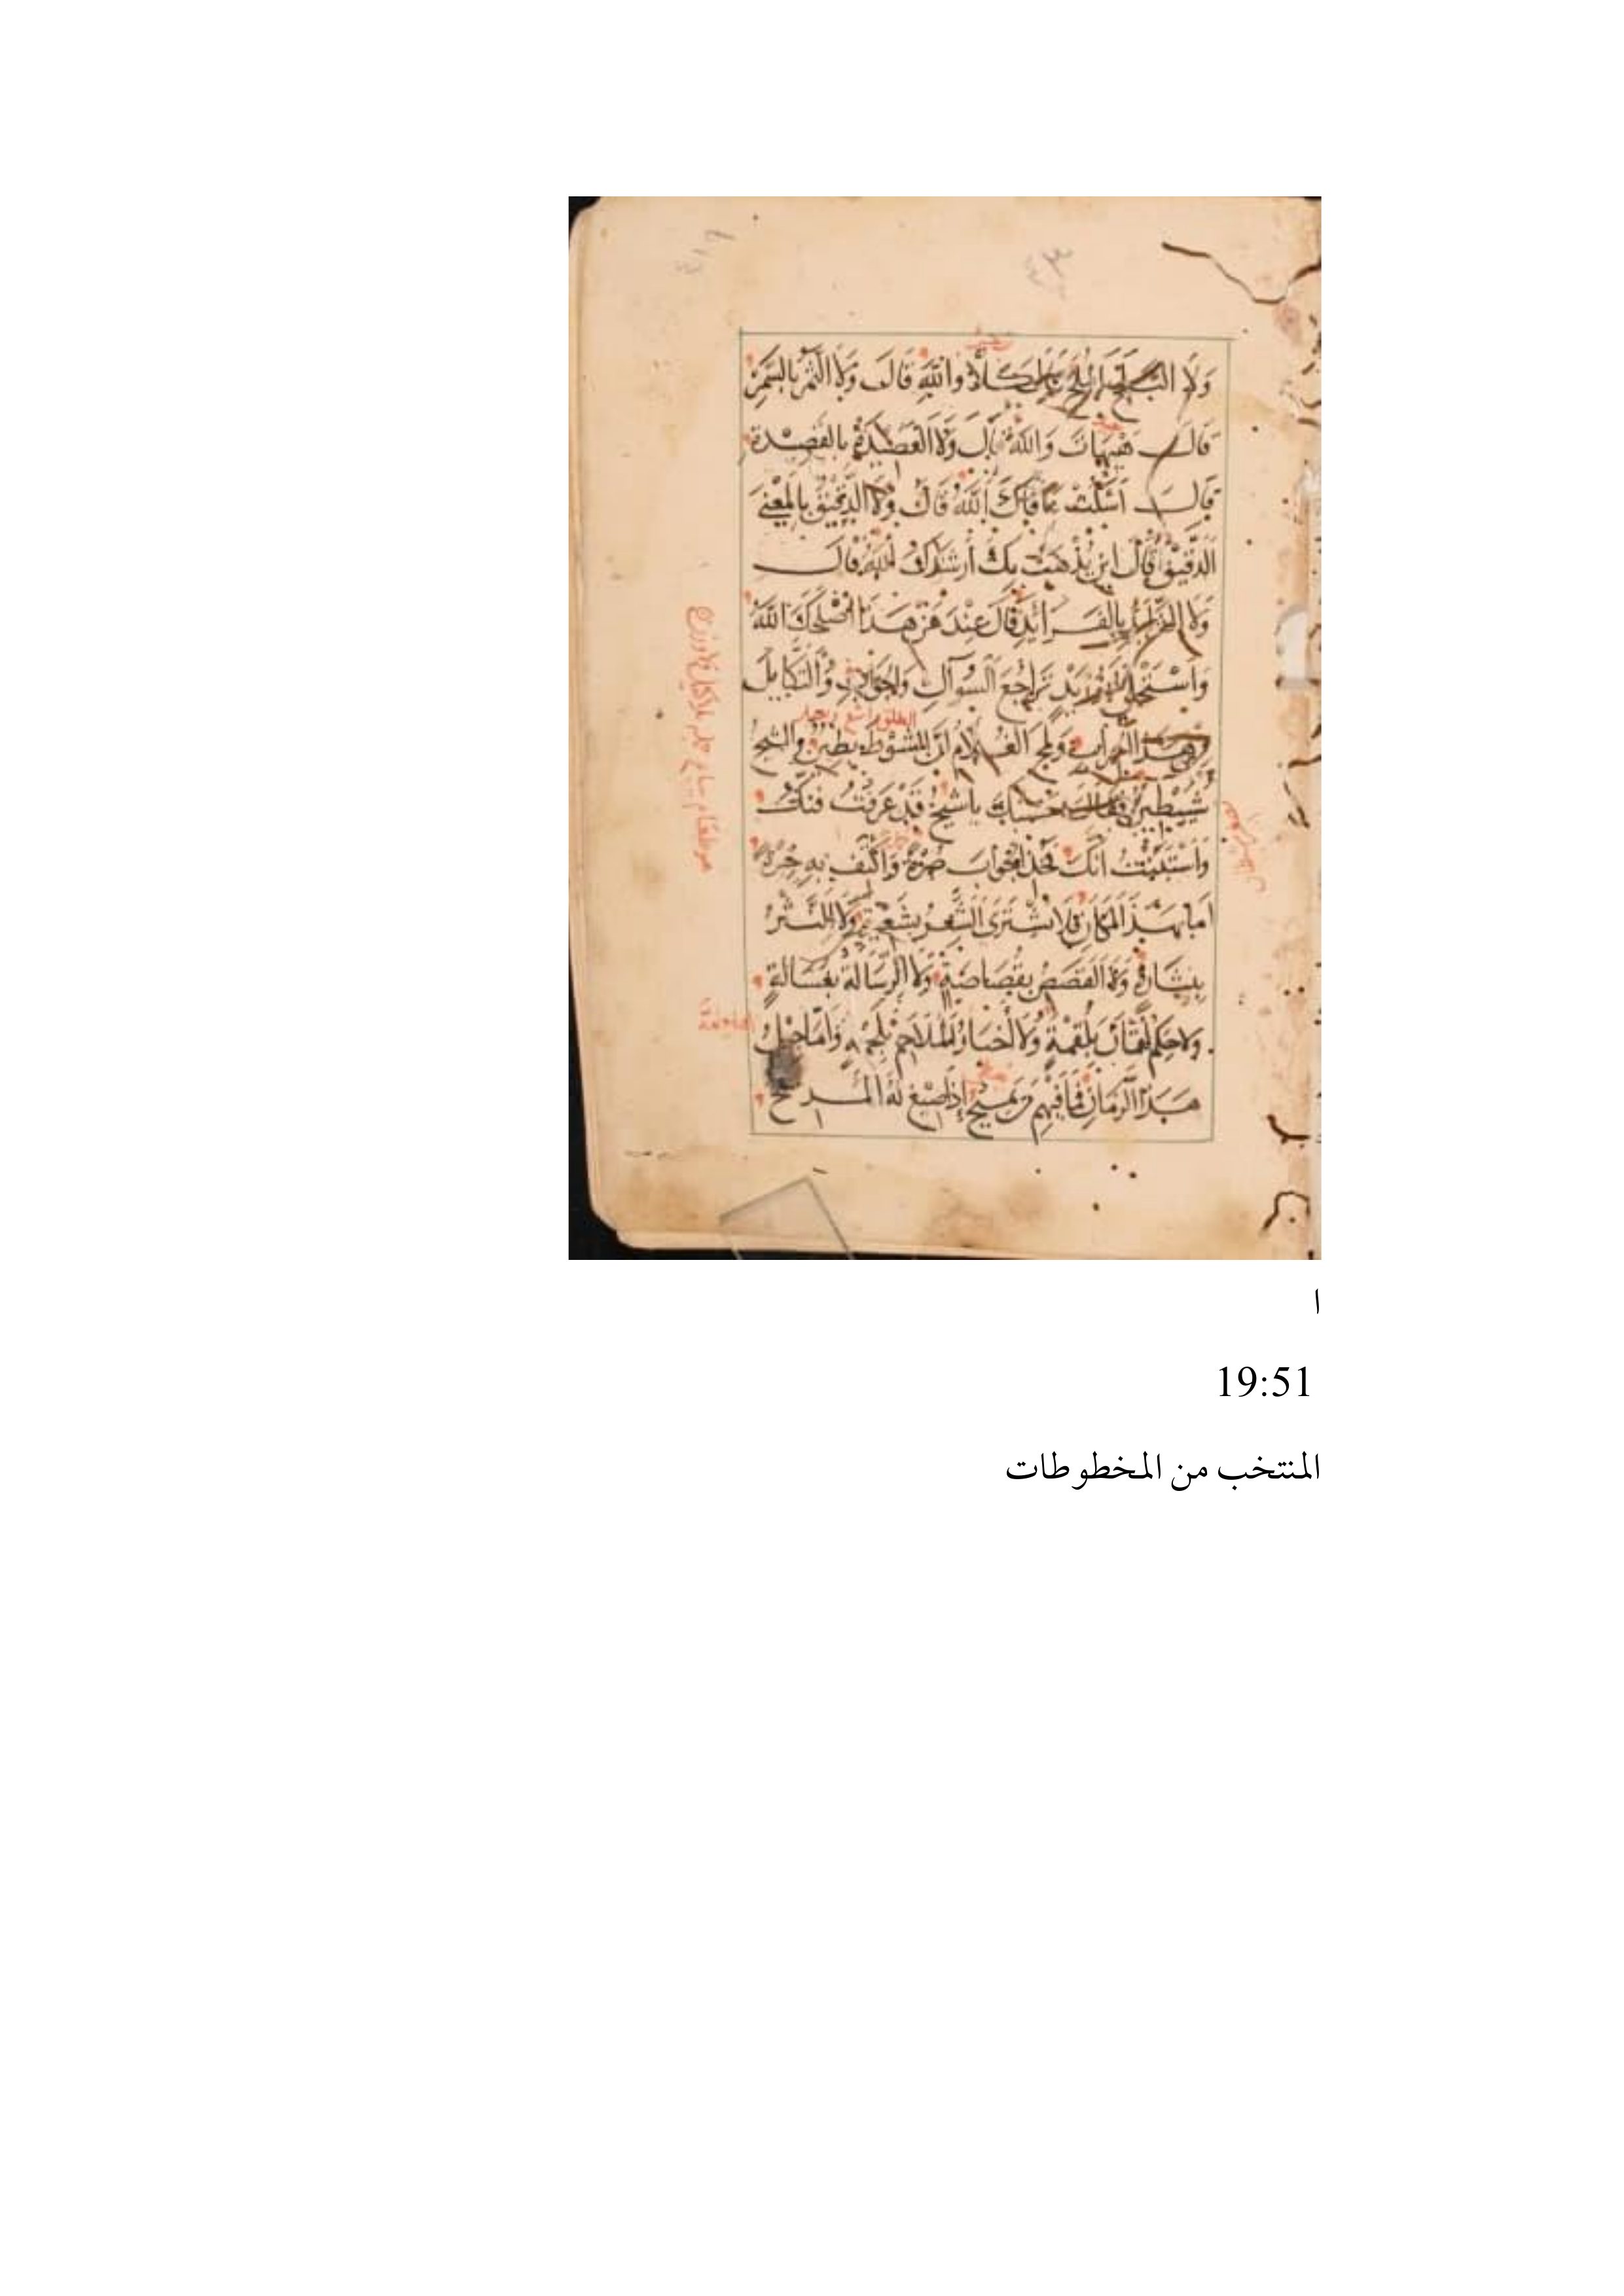 وَلَا البَلَحُ بِالمُلَحِ قَالَ كَلَّا وَاللهِ قَالَ وَلَا الثَّمَرُ بِالسَّمَرِ
قَالَ هَيْهَاتَ وَاللهِ قَالَ وَلَا العَصِيْدَةُ بِالقَصِيْدَةِ
قَالَ اسْكُتْ عَافَاكَ اللهُ قَالَ وَلَا الدَّقِيْقُ بِالمَعْنَى
الدَّقِيْقِ قَالَ اَيْنَ يُذْهَبُ بِكَ أَرْشَدَكَ اللهُ قَالَ
وَلَا الثَّرَائِدُ بِالفَرَائِدِ قَالَ عَدِّ عَنْ هَذَا اَصْلَحَكَ اللهُ
وَاسْتَحْلَى اَبُو زَيْدٍ تَرَاجُعَ السُّوَآلِ وَالجَوَابِ وَالتَّكَايُلَ
مِنْ هَذَا الجِرَابِ وَلَمَحَ الغُلَامُ اَنَّ الشَّوْطَ بَطِيْنٌ وَالشَّيْخَ
شُوَيْطِيْنٌ فَقَالَ حَسْبُكَ يَا شَيْخُ قَدْ عَرَفْتُ فَنَّكَ
وَاسْتَبَنْتُ اَنَّكَ فَخُذِ الجَوَابَ صُبْرَةً وَاكْتَفِ بِهِ خِبْرَةً
اَمَّا بِهَذَا المَكَانِ فَلَا يُشْتَرَى الشِّعْرُ بِشَعِيْرَةٍ وَلَا النَّثْرُ
بِنُثَارَةٍ وَلَا القَصَصُ بِقُصَاصَةٍ وَلَا الرِّسَالَةُ بِغُسَالَةٍ
وَلَا حِكَمُ لُقْمَانَ بِلُقْمَةٍ وَلَا أَخْبَارُ المَلَاحِمِ بِلَحْمَةٍ وَاَمَّا جِيْلُ
هَذَا الزَّمَانِ فَمَا فِيْهِمْ مَنْ يَمِيْحُ إِذَا صِيْغَ لَهُ المَدِيْحُ
ا
19:51
المنتخب من المخطوطات